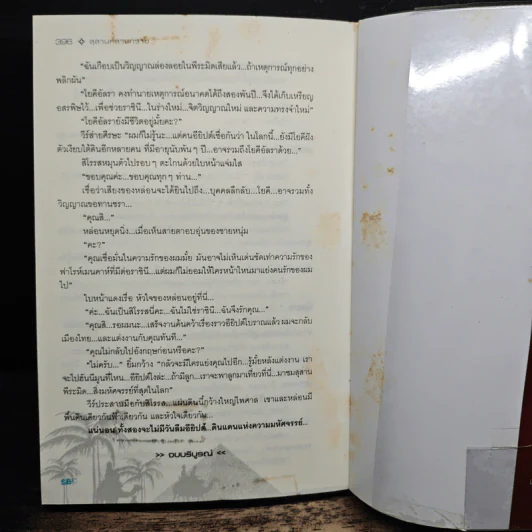 396
"ฉันเกือบเป็นวิญญาณล่องลอยในพีระมิดเสียแล้ว...ถ้าเหตุการณ์ทุกอย่าง
พลิกผัน"
"โยคีอัลรา คงทำนายเหตุการณ์อนาคตได้ถึงสองพันปี...จึงได้เก็บเหรียญ
อสรพิษไว้...เพื่อช่วยราชินี...ในร่างใหม่...จิตวิญญาณใหม่ และความทรงจำใหม่"
"โยคีอัลรายังมีชีวิตอยู่มั้ยคะ?"
วีร์ส่ายศีรษะ "ผมก็ไม่รู้นะ...แต่คนอียิปต์เชื่อกันว่า ในโลกนี้...ยังมีโยคีฝัง
ตัวเงียบใต้ดินอีกหลายคน ที่มีอายุนับพัน ๆ ปี...อาจรวมถึงโยคีอัลราด้วย..."
สิโรรสหมุนตัวไปรอบ ๆ ตะโกนด้วยใบหน้าแจ่มใส
"ขอบคุณค่ะ...ขอบคุณทุก ๆ ท่าน..."
เชื่อว่าเสียงของหล่อนจะได้ยินไปถึง...บุคคลลึกลับ...โยคี...อาจรวมทั้ง
วิญญาณขอทานชรา...
"คุณสิ..."
หล่อนหยุดนิ่ง...เมื่อเห็นสายตาอบอุ่นของชายหนุ่ม
"คะ?"
"คุณเชื่อมั่นในความรักของผมมั้ย มันอาจไม่เห็นเด่นชัดเท่าความรักของ
ฟาโรห์เมนคาห์ที่มีต่อราชินี...แต่ผมก็ไม่ยอมให้ใครหน้าไหนมาแย่งคนรักของผม
ไป"
ใบหน้าแดงเรื่อ หัวใจของหล่อนอยู่ที่นี่...
"ค่ะ...ฉันเป็นสิโรรสนี่คะ...ฉันไม่ใช่ราชินี...ฉันจึงรักคุณ..."
"คุณสิ...รอผมนะ...เสร็จงานค้นคว้าเรื่องราวอียิปต์โบราณแล้ว ผมจะกลับ
เมืองไทย...และแต่งงานกับคุณทันที..."
"คุณไม่กลับไปอังกฤษก่อนหรือคะ?"
"ไม่ครับ..." ยิ้มกว้าง "กลัวจะมีใครแย่งคุณไปอีก...รู้มั้ยหลังแต่งงาน เรา
จะไปฮันนีมูนที่ไหน...อียิปต์ไงล่ะ...ถ้ามีลูก...เราจะพาลูกมาเที่ยวที่นี่...มาชมสุสาน
พีระมิด...สิ่งมหัศจรรย์ที่สุดในโลก"
วีร์ประสานมือกับสิโรรส...แผ่นดินนี้กว้างใหญ่ไพศาล เขาและหล่อนมี
พื้นดินเดียวกัน ฟ้าเดียวกัน และหัวใจเดียวกัน...
แน่นอน ทั้งสองจะไม่มีวันลืมอียิปต์...ดินแดนแห่งความมหัศจรรย์...
>> จบบริบูรณ์ <<